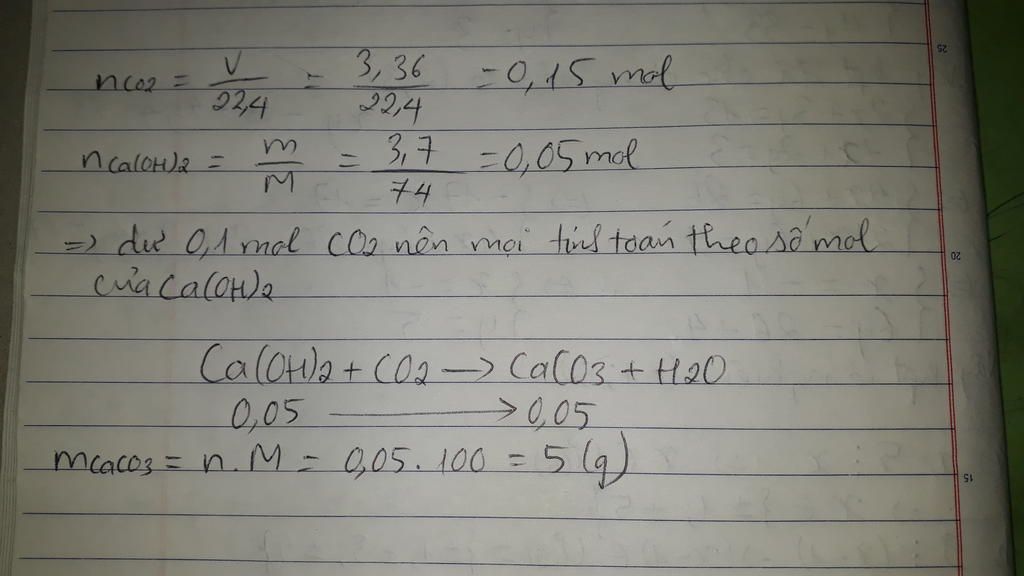 nCO2 = V/22,4 = 3,36/22,4 = 0,15 mol
nCa(OH)2 = m/M = 3,7/74 = 0,05 mol
=> dư 0,1 mol CO2 nên mọi tính toán theo số mol
của Ca(OH)2
Ca(OH)2 + CO2 → CaCO3 + H2O
0,05 → 0,05
mCaCO3 = n.M = 0,05.100 = 5 (g)
25
20
15